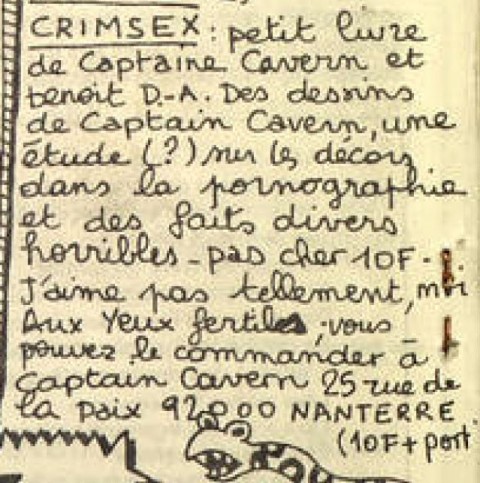 CRIMSEX : petit livre
de Captaine Cavern et
benoit D.-A. Des dessins
de Captain Cavern, une
étude (?) sur les décors
dans la pornographie
et des faits divers
horribles - pas cher 10F -
J'aime pas tellement, moi
Aux Yeux fertiles ; vous
pouvez le commander à
Captain Cavern 25 rue de
la Paix 92000 NANTERRE
(10F + port